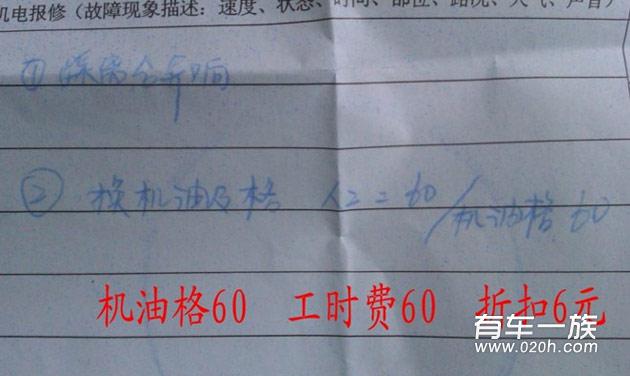 机电报修（故障现象描述：速度、状态、时间、部位、路况、天气、声音）
① 踩离合异响
② 换机油及格 人工=60/机油格60
机油格60 工时费60 折扣6元
有车一族
www.020h.com